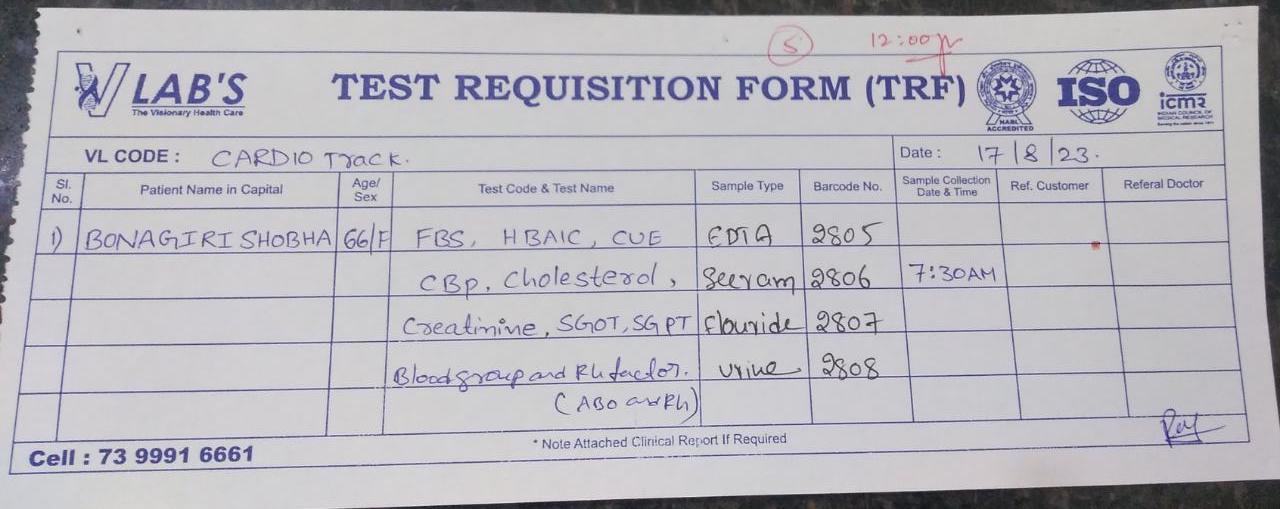 5 12:00p
V LAB'S TEST REQUISITION FORM (TRF) NABL ACCREDITED ISO icmr INDIAN COUNCIL OF MEDICAL RESEARCH
The Visionary Health Care
VL CODE : CARDIO Track. Date : 17/8/23.
Sl. No. Patient Name in Capital Age/ Sex Test Code & Test Name Sample Type Barcode No. Sample Collection Date & Time Ref. Customer Referal Doctor
1) BONAGIRI SHOBHA 66/F FBS, HBAIC, CUE EDTA 2805
CBp, Cholesterol, Seeram 2806 7:30AM
Creatinine, SGOT, SGPT Flouride 2807
Bloodgroup and Rh factor. Urine 2808
(ABO and Rh)
* Note Attached Clinical Report If Required
Cell : 73 9991 6661